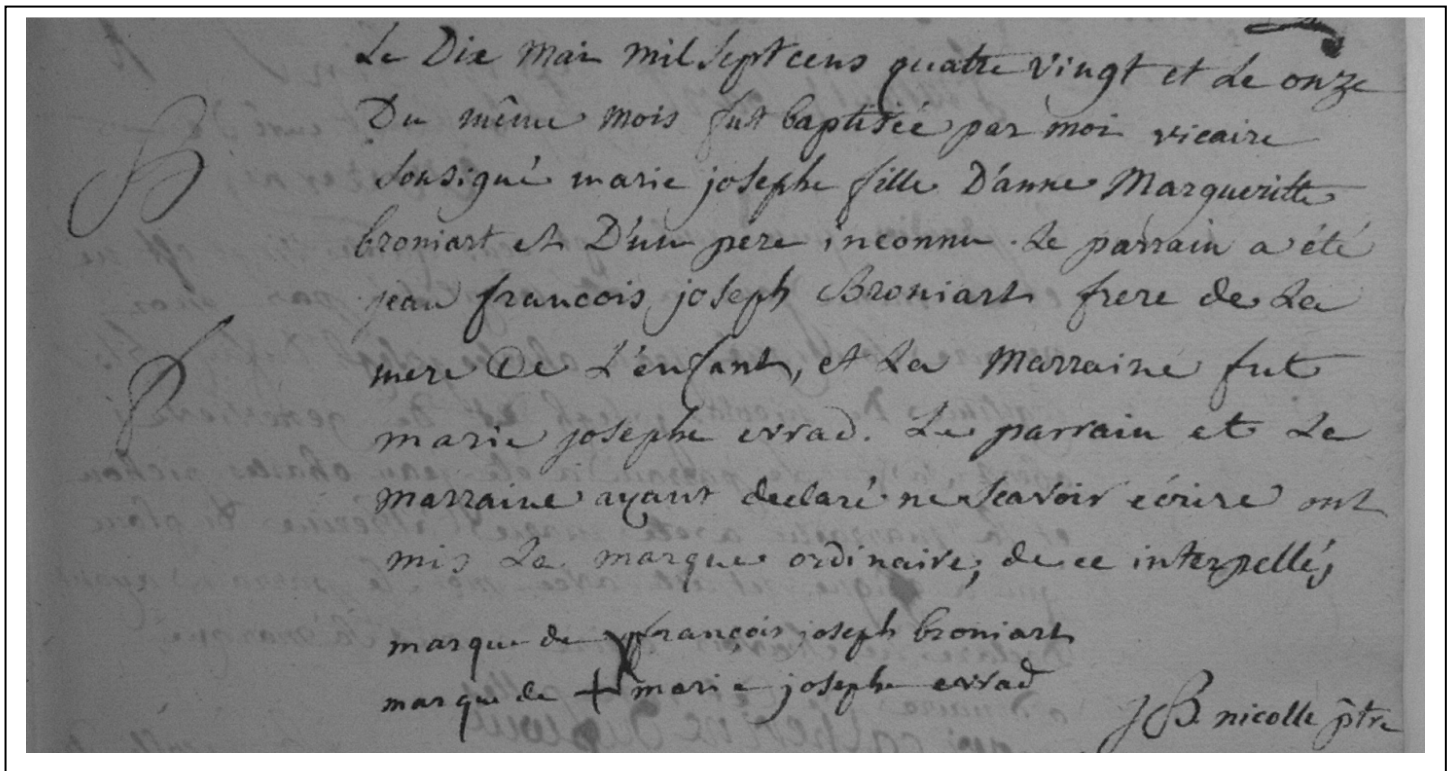 Le Dix Mai mil Sept cens quatre vingt et Le onze
Du même mois fut baptisée par moi vicaire
Sousigné marie josephe fille D'anne Margueritte
broniart et D'un pere inconnu. Le parrain a été
jean francois joseph Broniart frere de La
mere De L'enfant, et La Marraine fut
marie josephe errad. Le parrain et La
marraine ayant declaré ne scavoir ecrire ont
mis La marque ordinaire, de ce interpellés
marque de françois joseph broniart
marque de + marie josephe errad
JB. nicolle ptre
B